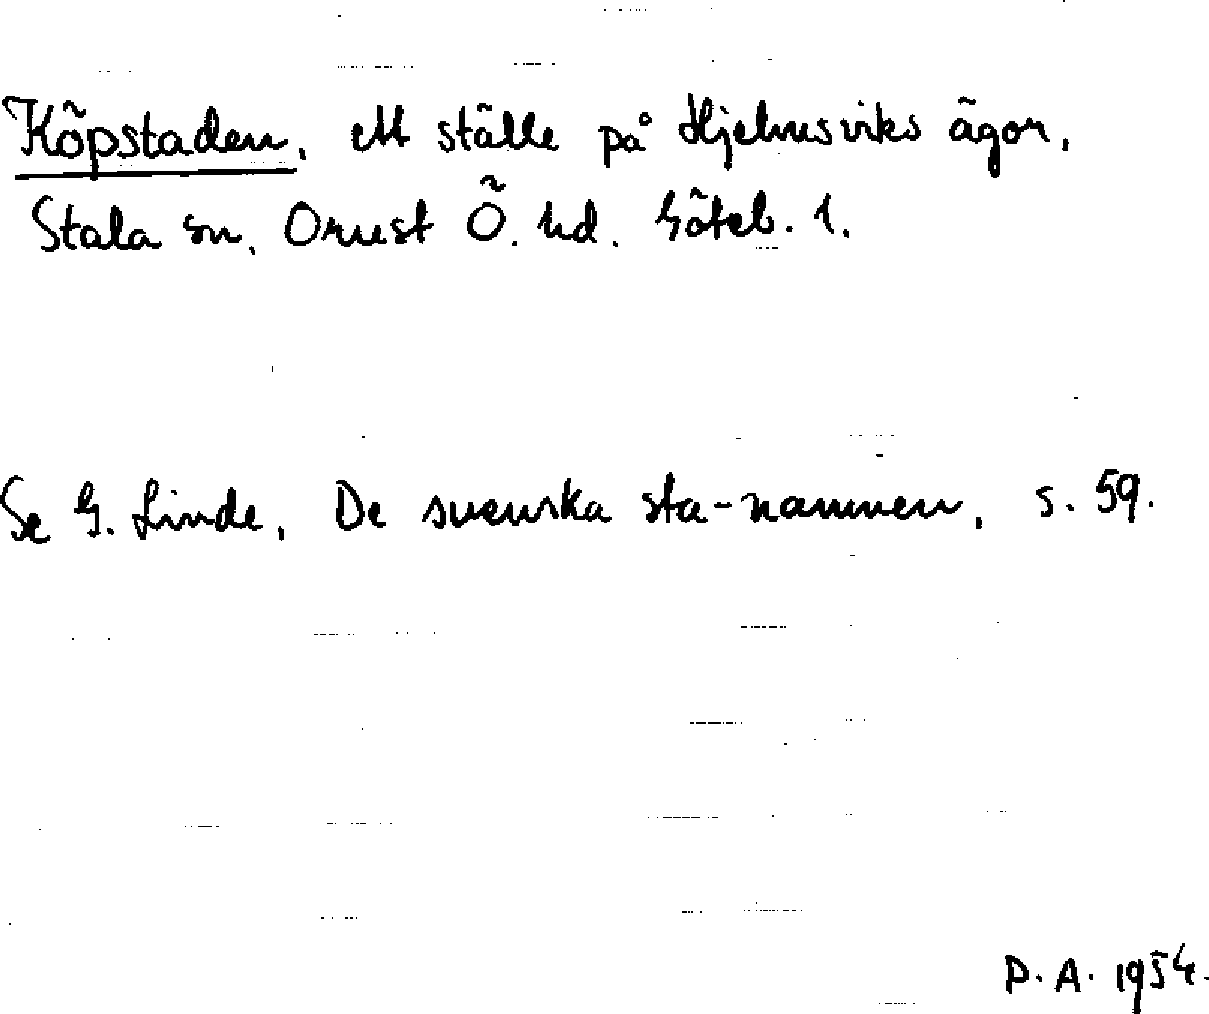 Köpstaden, ett ställe på Hjelmsviks ägor,
Stala sn, Orust Ö. hd. Göteb. l.
Se G. Linde, De svenska sta-namnen, s. 59.
D. A. 1954.